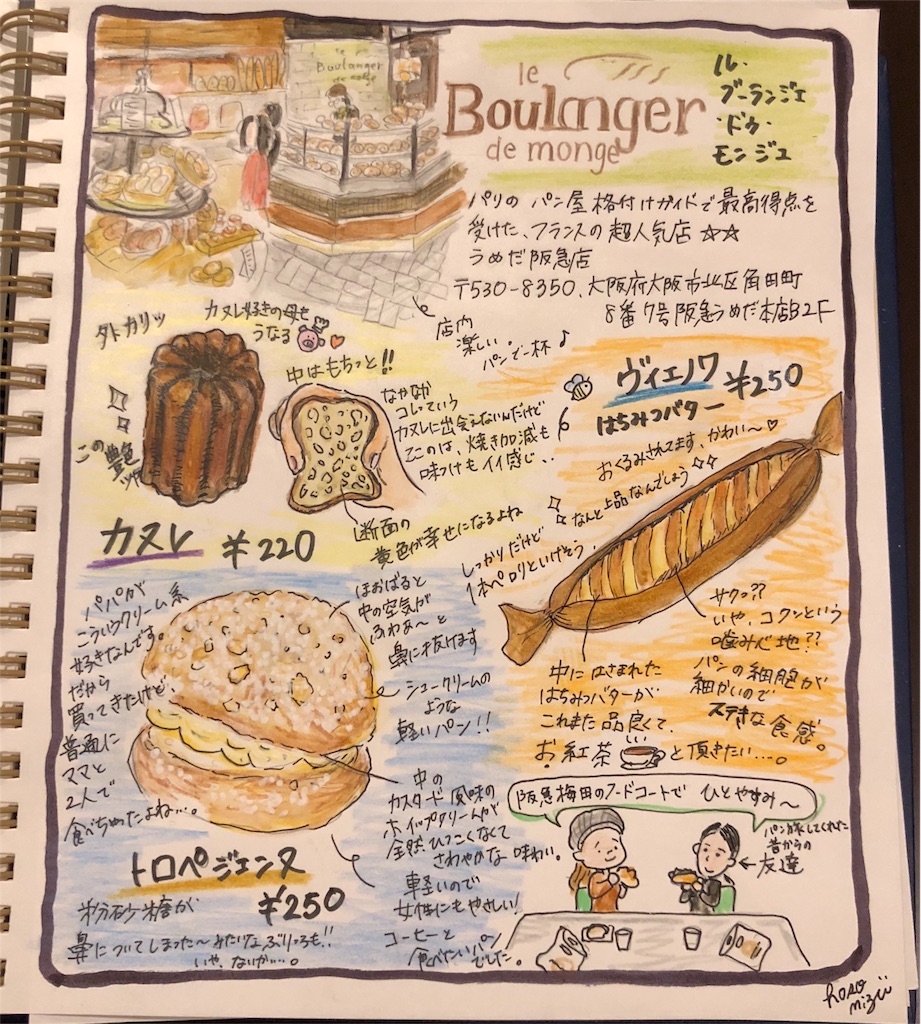 le
Boulanger
de monge
le
Boulanger
de monge
ル・
ブーランジェ
・ドゥ・
モンジュ
パリの パン屋格付けガイドで最高得点を
受けた、フランスの超人気店 ☆☆
うめだ阪急店
〒530-8350、大阪府大阪市北区角田町
8番7号阪急うめだ本店B2F
店内
楽しい。
パンで一杯♪
外カリッ
カヌレ好きの母も
うなる
中はもちっと!!
なかなか
コレっていう
カヌレに出会えないんだけど
ここのは、焼き加減も
味つけもイイ感じ、、
この艶
ツヤ
断面の
黄色が幸せになるよね
カヌレ ¥220
ヴィエノワ ¥250
はちみつバター
おくるみされてます、かわい〜♡
なんと上品なんでしょう
しっかりだけど
1本ペロリといけそう。
サクッ??
いや、コクンという
噛み心地??
パンの細胞が
細かいので
ステキな食感。
中にはさまれた
はちみつバターが
これまた品良くて
お紅茶 と頂きたい…。
パパが
こういうクリーム系
好きなんです。
だから
買ってきたけど、
普通に
ママと
2人で
食べちゃったよね…。
ほおばると
中の空気が
ふわぁ〜と
鼻に抜けます
シュークリームの
ような
軽いパン!!
中の
カスタード風味の
ホイップクリームが
全然ひつこくなくて
さわやかな味わい。
軽いので
女性にもやさしい!
コーヒーと
食べたいパン
でした。
トロペジェンヌ
¥250
粉砂糖が
鼻についてしまった〜みたいなぶりっ子も!!
いや、ないか…。
阪急梅田のフードコートで ひとやすみ〜
パン旅してくれた
昔からの
友達
hoso
mizii